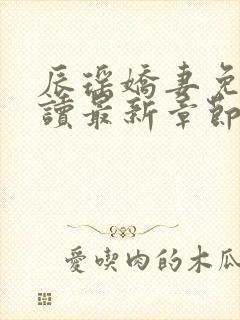 辰瑤嬌妻免
讀最新章節
愛喫肉的木瓜